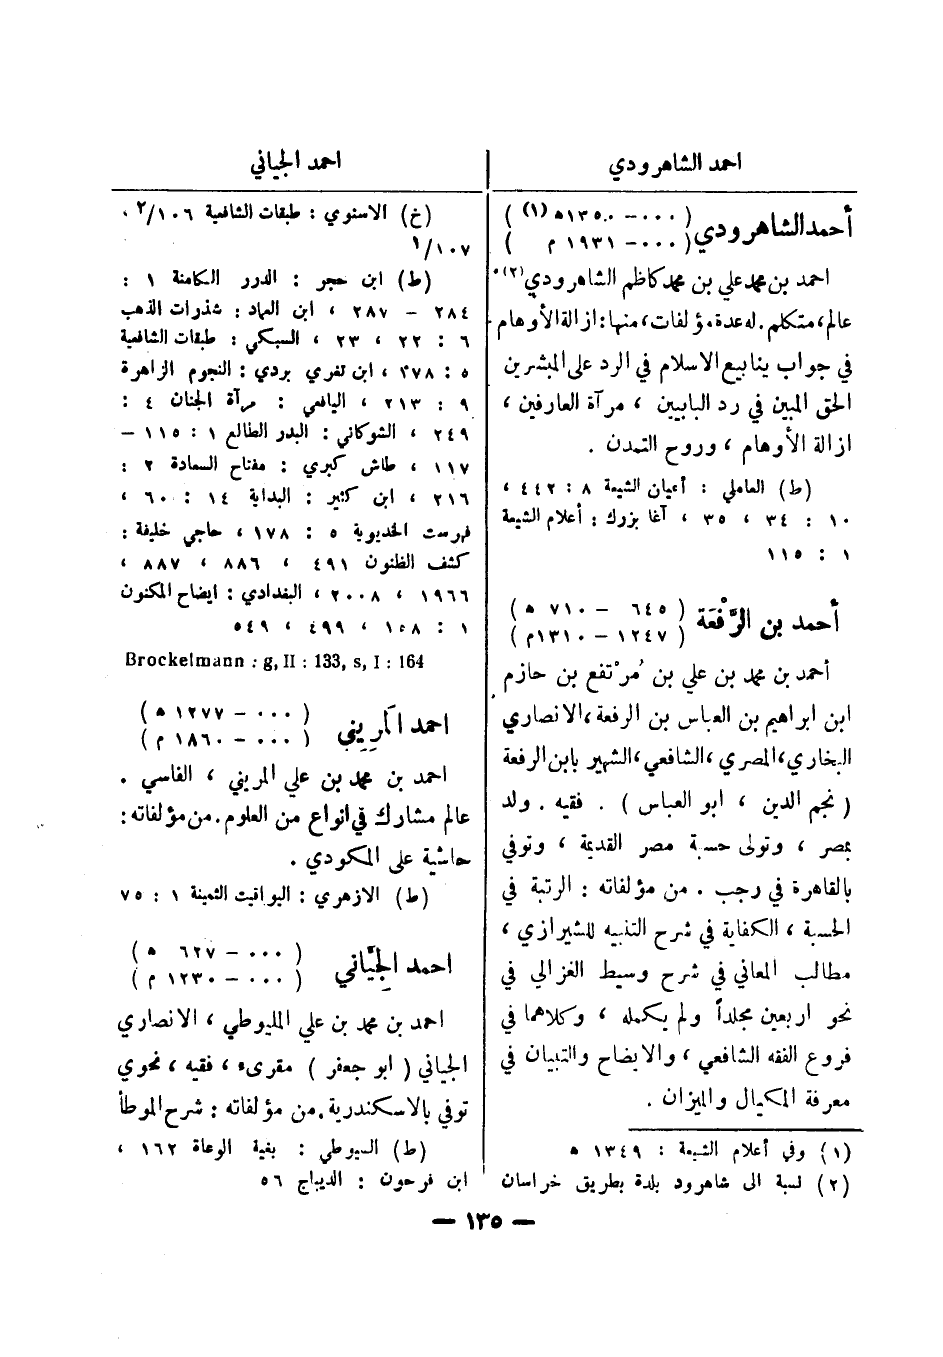 احمد الشاهرودي
أحمد الشاهرودي ( ٠٠٠ - ١٣٥٠ ه (١) )
( ٠٠٠ - ١٩٣١ م )
احمد بن محمد علي بن محمد كاظم الشاهرودي (٢) .
عالم ، متكلم . له عدة مؤلفات ، منها : ازالة الأوهام
في جواب ينابيع الاسلام في الرد على المبشرين
الحق المبين في رد البابيين ، مرآة العارفين ،
ازالة الأوهام ، وروح التمدن .
(ط) العاملي : أعيان الشيعة ٨ : ٤٤٢ ،
١٠ : ٣٤ ، ٣٥ ، آغا بزرك : أعلام الشيعة
١ : ١١٥
أحمد بن الرِّفْعَة ( ٦٤٥ - ٧١٠ ه )
( ١٢٤٧ - ١٣١٠ م )
أحمد بن محمد بن علي بن مُرْتفع بن حازم
ابن ابراهيم بن العباس بن الرفعة ، الانصاري
البخاري ، المصري ، الشافعي ، الشهير بابن الرفعة
( نجم الدين ، ابو العباس ) . فقيه . ولد
بمصر ، وتولى حسبة مصر القديمة ، وتوفي
بالقاهرة في رجب . من مؤلفاته : الرتبة في
الحسبة ، الكفاية في شرح التنبيه للشيرازي ،
مطالب المعاني في شرح وسيط الغزالي في
نحو اربعين مجلداً ولم يكمله ، وكلاهما في
فروع الفقه الشافعي ، والايضاح والتبيان في
معرفة المكيال والميزان .
(١) وفي أعلام الشيعة : ١٣٤٩ ه
(٢) نسبة الى شاهرود بلدة بطريق خراسان
احمد الجياني
(خ) الاسنوي : طبقات الشافعية ١٠٦/٢ ،
١٠٧/١
(ط) ابن حجر : الدرر الكامنة ١ :
٢٨٤ - ٢٨٧ ، ابن العماد : شذرات الذهب
٦ : ٢٢ ، ٢٣ ، السبكي : طبقات الشافعية
٥ : ١٧٨ ، ابن تغري بردي : النجوم الزاهرة
٩ : ٢١٣ ، اليافعي : مرآة الجنان ٤ :
٢٤٩ ، الشوكاني : البدر الطالع ١ : ١١٥ -
١١٧ ، طاش كبري : مفتاح السعادة ٢ :
٢١٦ ، ابن كثير : البداية ١٤ : ٦٠ ،
فهرست الخديوية ٥ : ١٧٨ ، حاجي خليفة :
كشف الظنون ٤٩١ ، ٨٨٦ ، ٨٨٧ ،
١٩٦٦ ، ٢٠٠٨ ، البغدادي : ايضاح المكنون
١ : ١٥٨ ، ٤٩٩ ، ٥٤٩
Brockelmann : g, II : 133, s, I : 164
احمد المَرِيني ( ٠٠٠ - ١٢٧٧ ه )
( ٠٠٠ - ١٨٦٠ م )
احمد بن محمد بن علي المريني ، الفاسي .
عالم مشارك في انواع من العلوم . من مؤلفاته :
حاشية على المكودي .
(ط) الازهري : اليواقيت الثمينة ١ : ٧٥
احمد الجَيَّاني ( ٠٠٠ - ٦٢٧ ه )
( ٠٠٠ - ١٢٣٠ م )
احمد بن محمد بن علي المليوطي ، الانصاري
الجياني ( ابو جعفر ) مقرىء ، فقيه ، نحوي
توفي بالاسكندرية . من مؤلفاته : شرح الموطأ
(ط) السيوطي : بغية الوعاة ١٦٢ ،
ابن فرحون : الديباج ٥٦
— ١٣٥ —